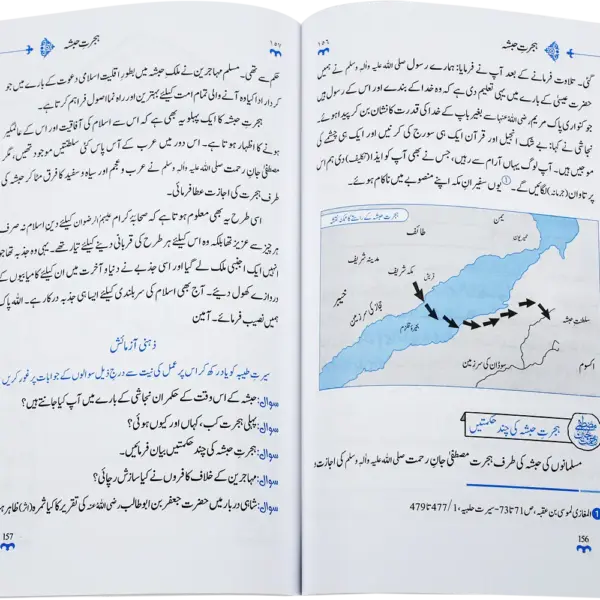 ہجرتِ حبشہ
١٥٦
گئی۔ تلاوت فرمانے کے بعد آپ نے فرمایا: ہمارے رسول صلی اللہ علیہ والہٖ وسلم نے ہمیں
حضرت عیسیٰ کے بارے میں یہی تعلیم دی ہے کہ وہ خدا کے بندے اور اس کے رسول ہیں
جو کنواری پاک مریم رضی اللہ عنہا سے بغیر باپ کے خدا کی قدرت کا نشان بن کر پیدا ہوئے۔
نجاشی نے کہا: بے شک انجیل اور قرآن ایک ہی سورج کی کرنیں اور ایک ہی چشمے کی
موجیں ہیں۔ آپ لوگ یہاں آرام سے رہیں، جس نے بھی آپ کو ایذا (تکلیف) دی ہم اس
پر تاوان (جرمانہ) لگائیں گے۔ یوں سفیرانِ مکہ اپنے منصوبے میں ناکام ہوئے۔
ہجرتِ حبشہ کے راستے کا
یمن
طائف
مدینہ شریف
مکہ شریف
خیبر
حجاز کی سرزمین
بحیرۂ قلزم
سلطنت حبشہ
سوڈان کی سرزمین
اکسوم
ہجرتِ حبشہ کی چند حکمتیں
مسلمانوں کی حبشہ کی طرف ہجرت مصطفیٰ جانِ رحمت صلی اللہ علیہ والہٖ وسلم کی اجازت و
1 المغازی لموسی بن عقبہ، ص71تا73-سیرت حلبیہ، 1/477تا479
156
ہجرتِ حبشہ
١٥٧
حکم سے تھی۔ مسلم مہاجرین نے ملکِ حبشہ میں بطورِ اقلیت اسلامی دعوت کے بارے میں جو
کردار ادا کیا وہ آنے والی تمام امت کیلئے بہترین اور راہ نما اصول فراہم کرتا ہے۔
ہجرتِ حبشہ کا ایک پہلو یہ بھی ہے کہ اس سے اسلام کی آفاقیت اور اس کے عالمگیر
ہونے کا اظہار ہوتا ہے۔ اس دور میں عرب کے آس پاس کئی سلطنتیں موجود تھیں، مگر
مصطفیٰ جانِ رحمت صلی اللہ علیہ والہٖ وسلم نے عرب و عجم اور سیاہ و سفید کا فرق مٹا کر حبشہ کی
طرف ہجرت کی اجازت عطا فرمائی۔
اسی طرح یہ بھی معلوم ہوتا ہے کہ صحابۂ کرام علیہم الرضوان کیلئے دینِ اسلام نہ صرف
ہر چیز سے عزیز تھا بلکہ وہ اس کیلئے ہر طرح کی قربانی دینے کیلئے تیار تھے۔ یہی وہ جذبہ تھا جو
انہیں ایک اجنبی ملک لے گیا اور اسی جذبے نے دنیا و آخرت میں ان کیلئے کامیابیوں کے
دروازے کھول دیئے۔ آج بھی اسلام کی سربلندی کیلئے ایسا ہی جذبہ درکار ہے۔ اللہ پاک
ہمیں نصیب فرمائے۔ آمین
ذہنی آزمائش
سیرتِ طیبہ کو یاد رکھ کر اس پر عمل کی نیت سے درج ذیل سوالوں کے جوابات پر غور کریں
سوال: حبشہ کے اس وقت کے حکمران نجاشی کے بارے میں آپ کیا جانتے ہیں؟
سوال: پہلی ہجرت کب، کہاں اور کیوں ہوئی؟
سوال: ہجرتِ حبشہ کی چند حکمتیں بیان فرمائیں۔
سوال: مہاجرین کے خلاف کافروں نے کیا سازش رچائی؟
سوال: شاہی دربار میں حضرت جعفر بن ابو طالب رضی اللہ عنہ کی تقریر کا کیا ثمرہ (اثر) ظاہر
157